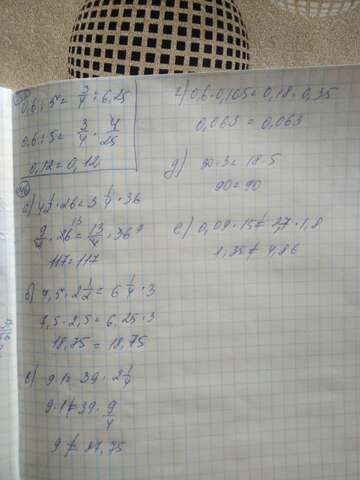 0,6 : 5 = 3/4 : 6,25
0,6 : 5 = 3/4 · 4/25
0,12 = 0,12
а) 4 1/2 · 26 = 3 1/4 · 36
9/2 · 26 13 = 13/4 · 36 9
117 = 117
б) 7,5 · 2 1/2 = 6 1/4 · 3
7,5 · 2,5 = 6,25 · 3
18,75 = 18,75
в) 9 · 1 = 39 · 2 1/4
9 · 1 ≠ 39 · 9/4
9 ≠ 87,75
г) 0,6 · 0,105 = 0,18 · 0,35
0,063 = 0,063
д) 30 · 3 = 18 · 5
90 = 90
е) 0,09 · 15 ≠ 27 · 1,8
1,35 ≠ 48,6